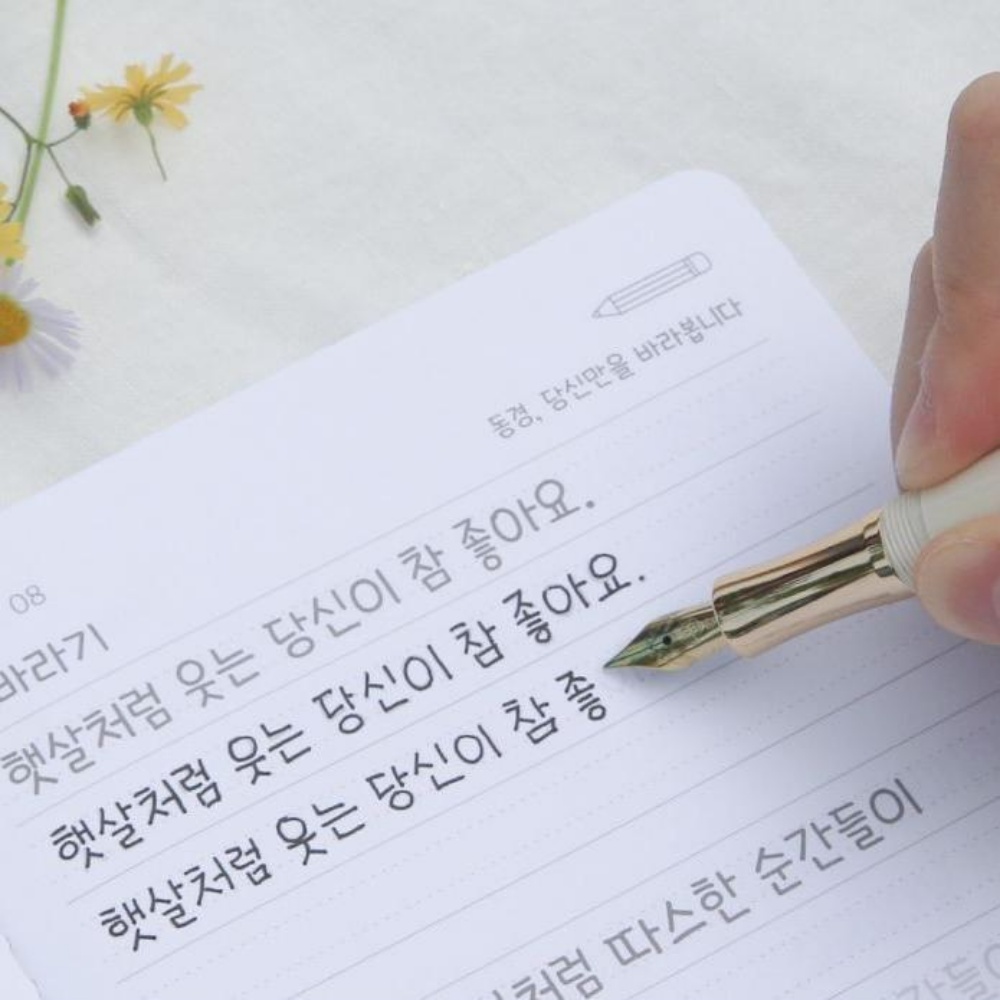 동경, 당신만을 바라봅니다
08
바라기
햇살처럼 웃는 당신이 참 좋아요.
햇살처럼 웃는 당신이 참 좋아요.
햇살처럼 웃는 당신이 참 좋
따스한 순간들이